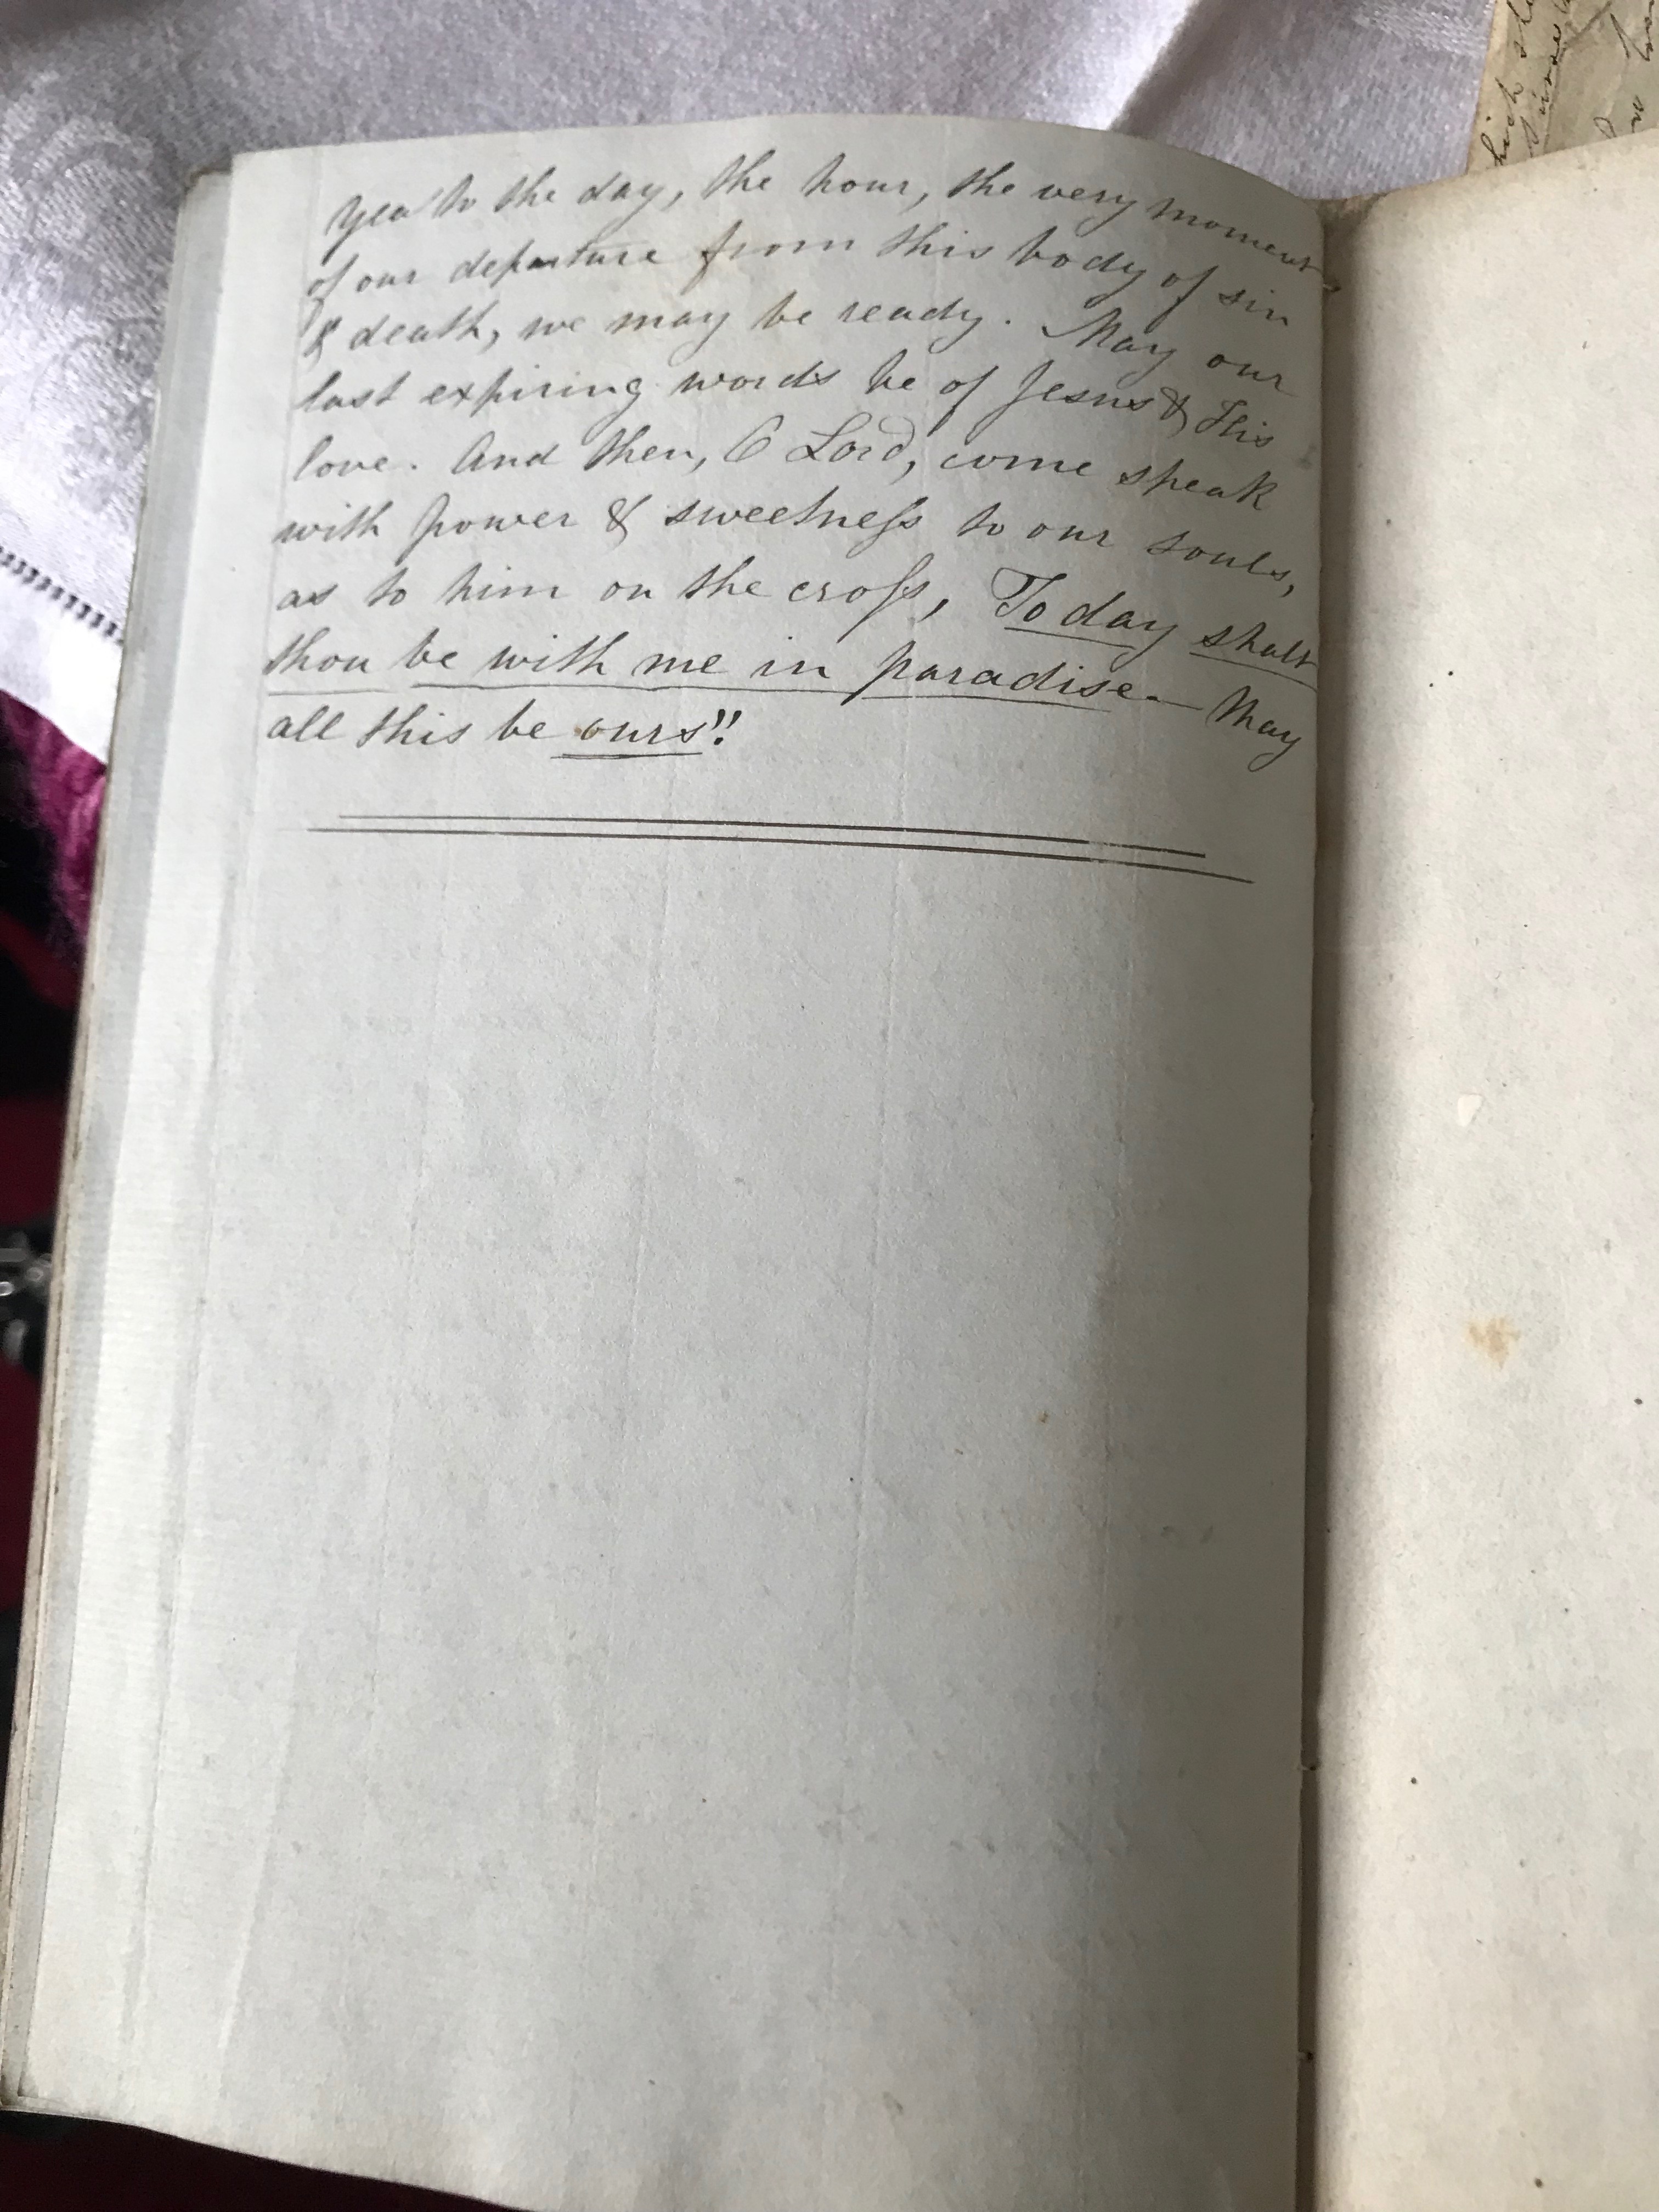 Yea to the day, the hour, the very moment
of our departure from this body of sin
& death, we may be ready. May our
last expiring words be of Jesus & His
love. And then, O Lord, come speak
with power & sweetneſs to our souls,
as to him on the croſs, To day shalt
thou be with me in paradise. — May
all this be ours!!